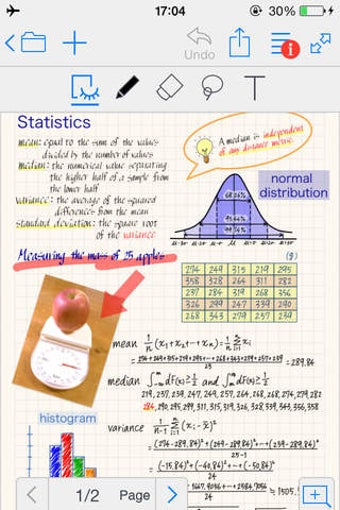 17:04
30%
Undo
Statistics
mean: equal to the sum of the values
divided by the number of values
median: the numerical value separating
the higher half of a sample from
the lower half
variance: the average of the squared
differences from the mean
standard deviation: the square root
of the variance
A median is independent
of any distance metric.
normal
distribution
Measuring the mass of 25 apples
(g)
274 249 315 219 295
358 328 264 311 282
237 284 319 268 356
326 299 247 339 290
268 343 279 257 239
mean 1/n (x₁+x₂+⋯+xₙ)=1/n Σ xᵢ
= 289.84
median ∫ dF(x)≥1/2 and ∫ dF(x)≥1/2
284, 290, 295, 299, 311, 315, 319, 326, 328, 339, 343, 356, 358
variance
= (274-289.84)²+(249-289.84)²+⋯+(239-289.84)²
25-1
= (-15.84)²+(-40.84)²+⋯+(-50.84)²
24
histogram
24
1/2 Page